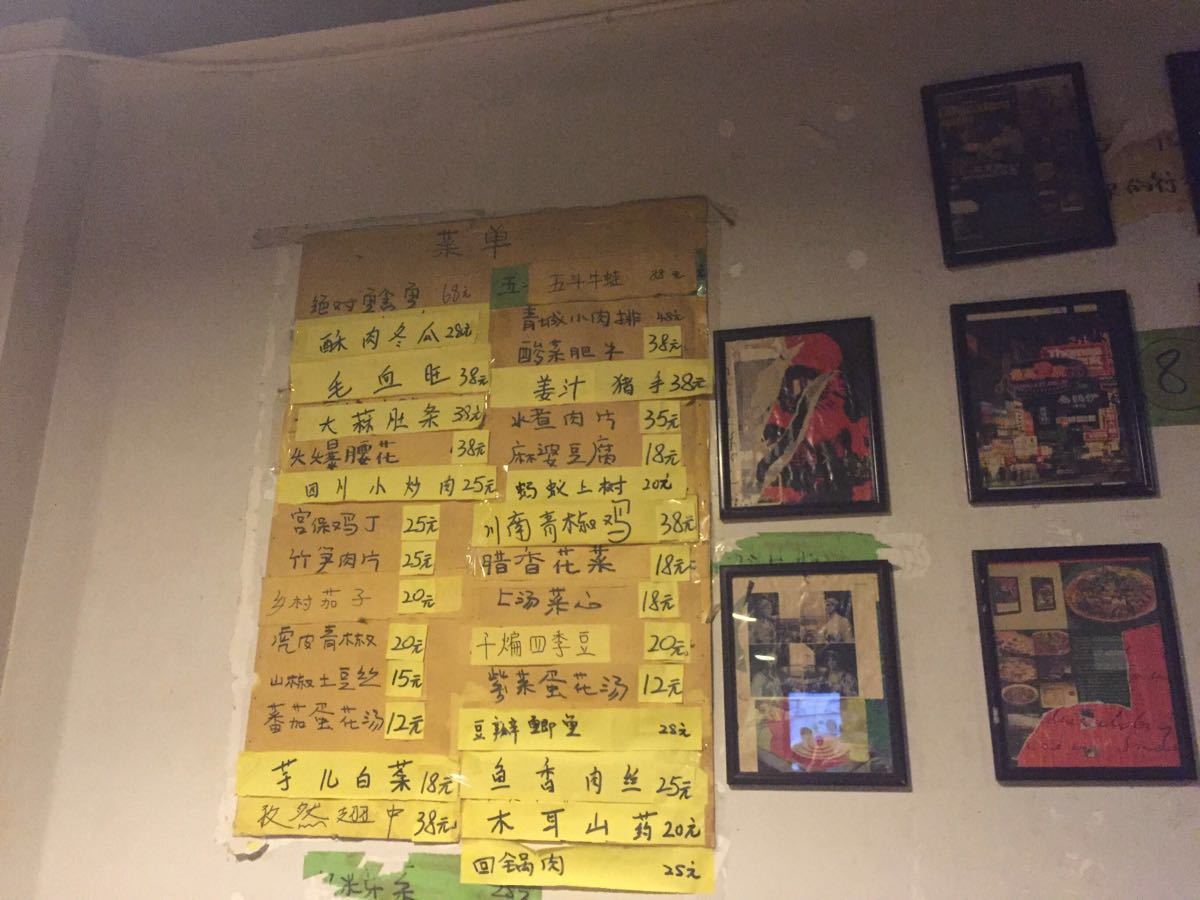 菜单
绝对 68元
酥肉冬瓜 28元
毛血旺 38元
大蒜肚条 38元
火爆腰花 38元
四川小炒肉 25元
宫保鸡丁 25元
竹笋肉片 25元
乡村茄子 20元
虎皮青椒 20元
山椒土豆丝 15元
蕃茄蛋花汤 12元
芋儿白菜 18元
孜然翅中 38元
五 五斗牛蛙 88元
青城小肉排 48元
酸菜肥牛 38元
姜汁猪手 38元
水煮肉片 35元
麻婆豆腐 18元
蚂蚁上树 20元
川南青椒鸡 38元
腊香花菜 18元
上汤菜心 18元
干煸四季豆 20元
紫菜蛋花汤 12元
豆瓣鲫鱼 28元
鱼香肉丝 25元
木耳山药 20元
回锅肉 25元
的行
8